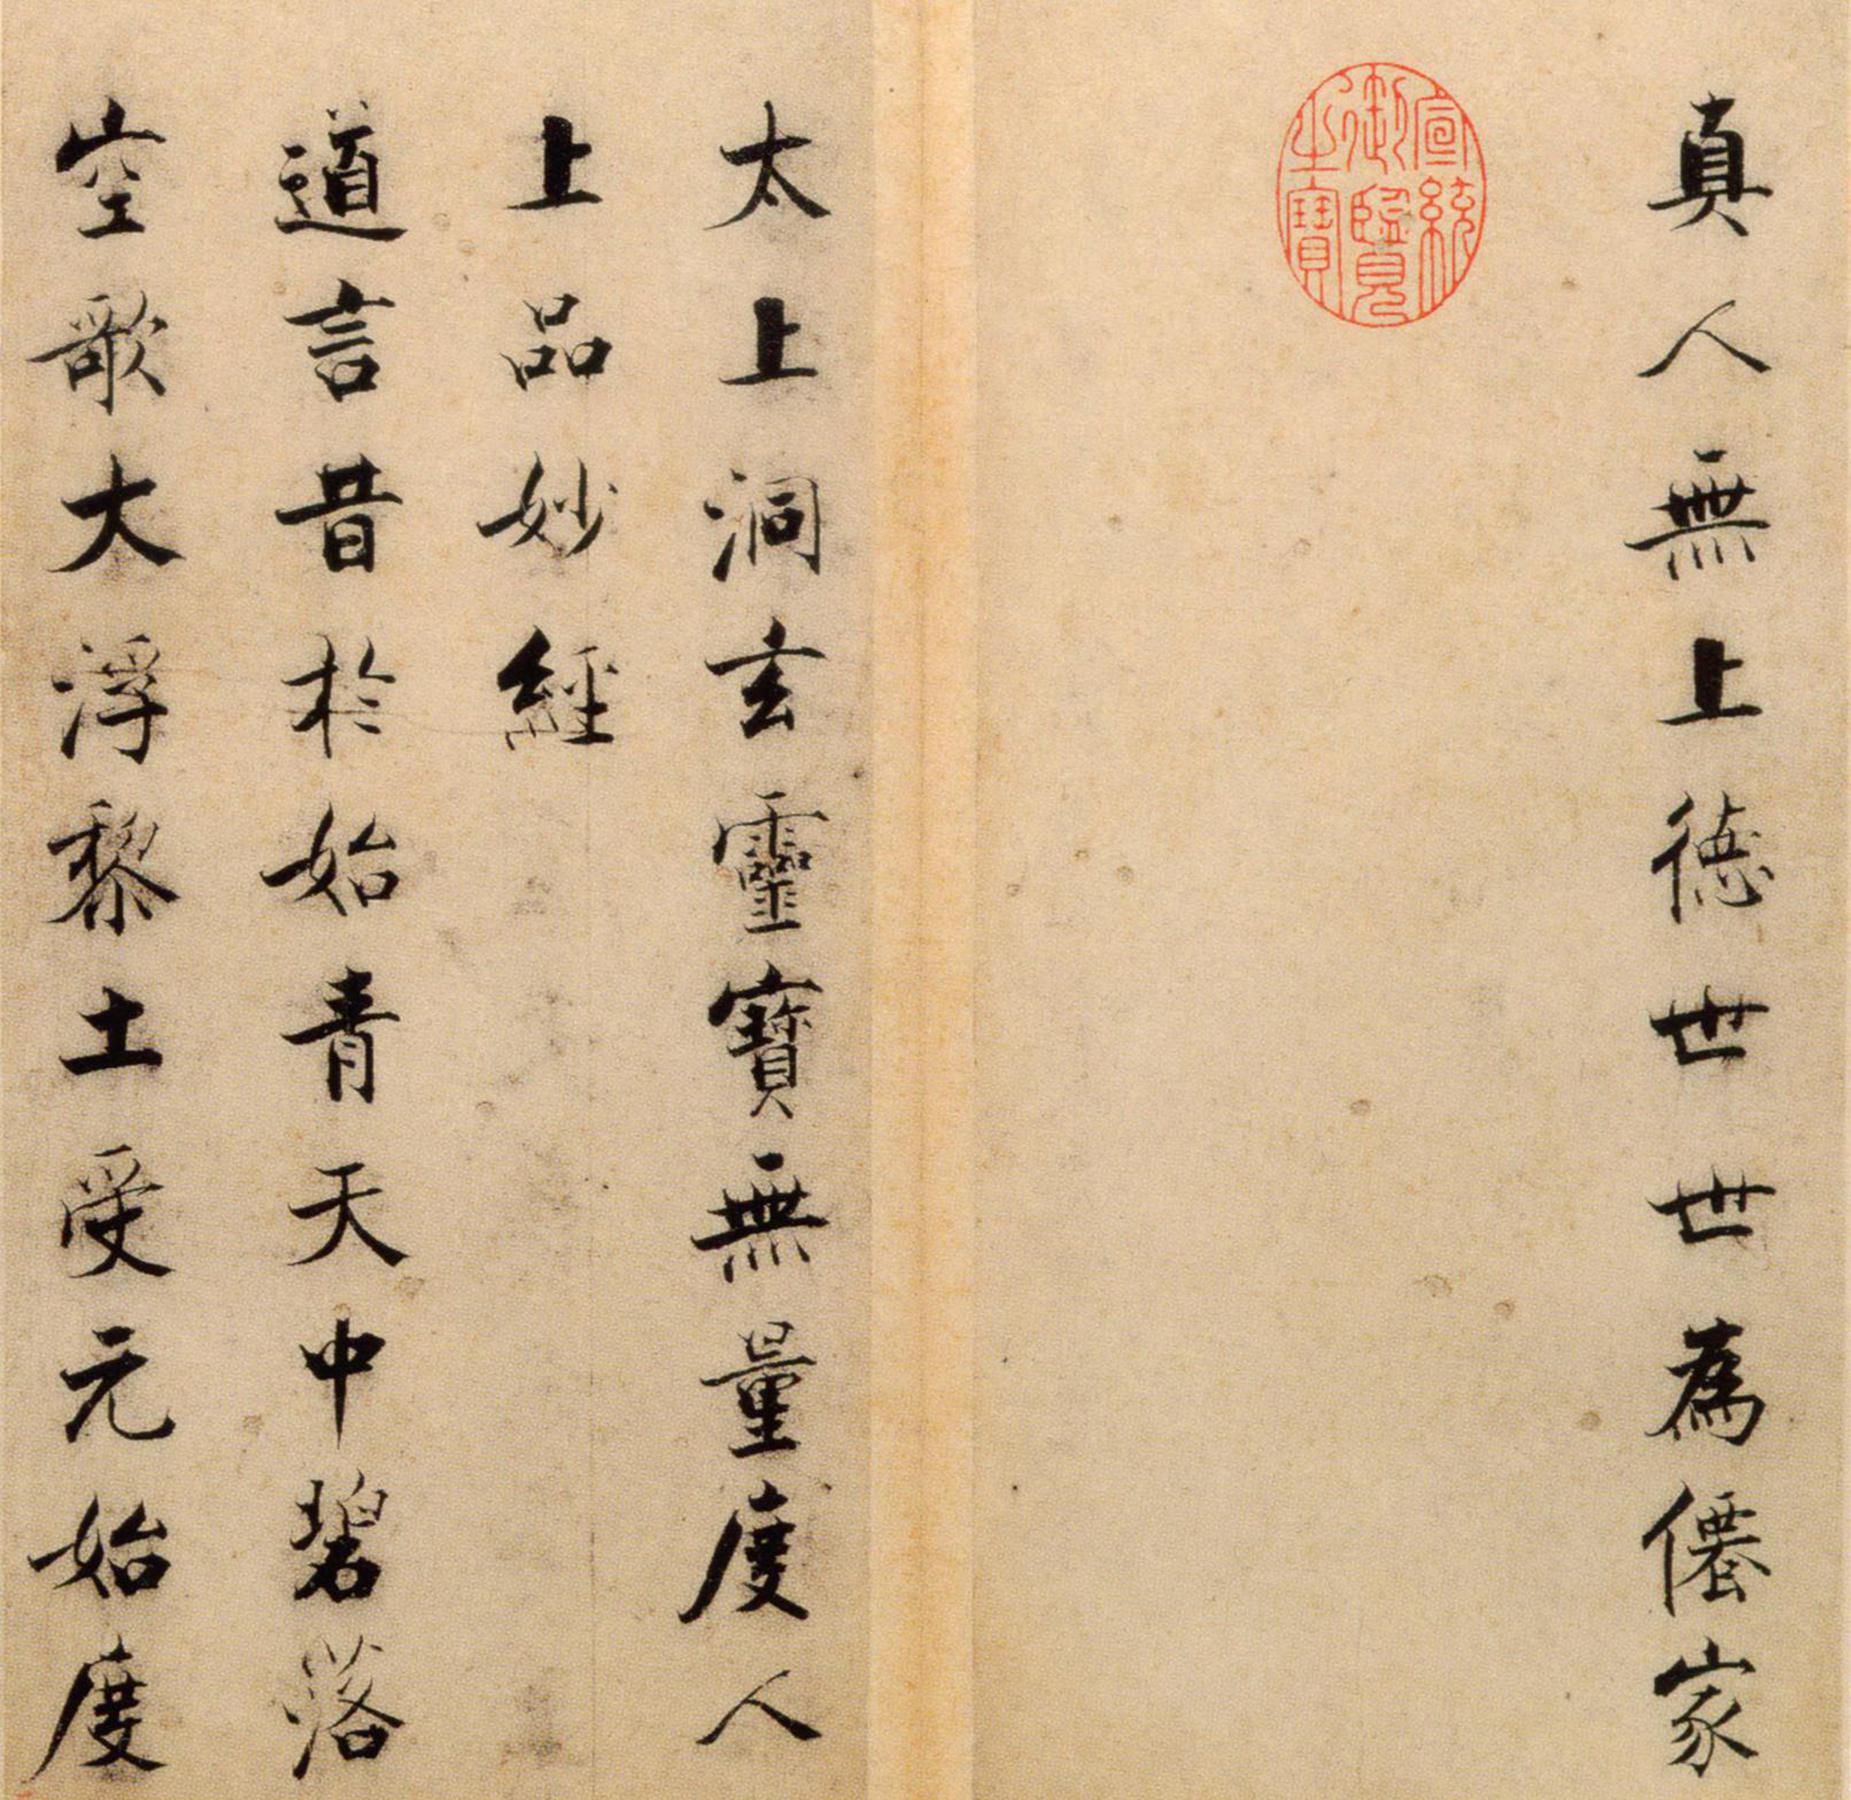 真人無上德世世為僊家
宣統
御覽
之寶
太上洞玄靈寶無量度人
上品妙經
道言昔於始青天中碧落
空歌大浮黎土受元始度